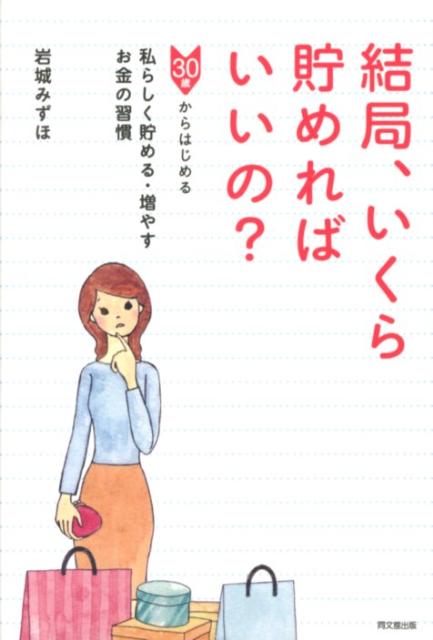 結局、いくら
貯めれば
いいの？
30歳からはじめる
私らしく貯める・増やす
お金の習慣
岩城みずほ
同文舘出版